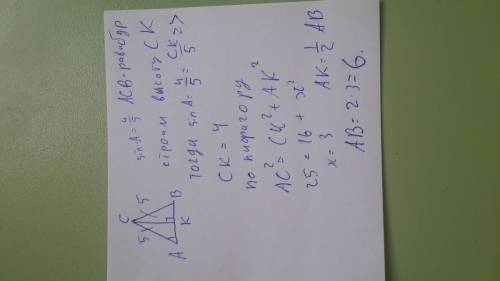 C
5
5
A
K
B
sin A = 4/5 ACB - равнобдр
строим высоту CK
тогда sin A = 4/5 = CK/5 =>
CK = 4
по пифагору
AC² = CK² + AK²
25 = 16 + x²
x = 3 AK = 1/2 AB
AB = 2·3 = 6.